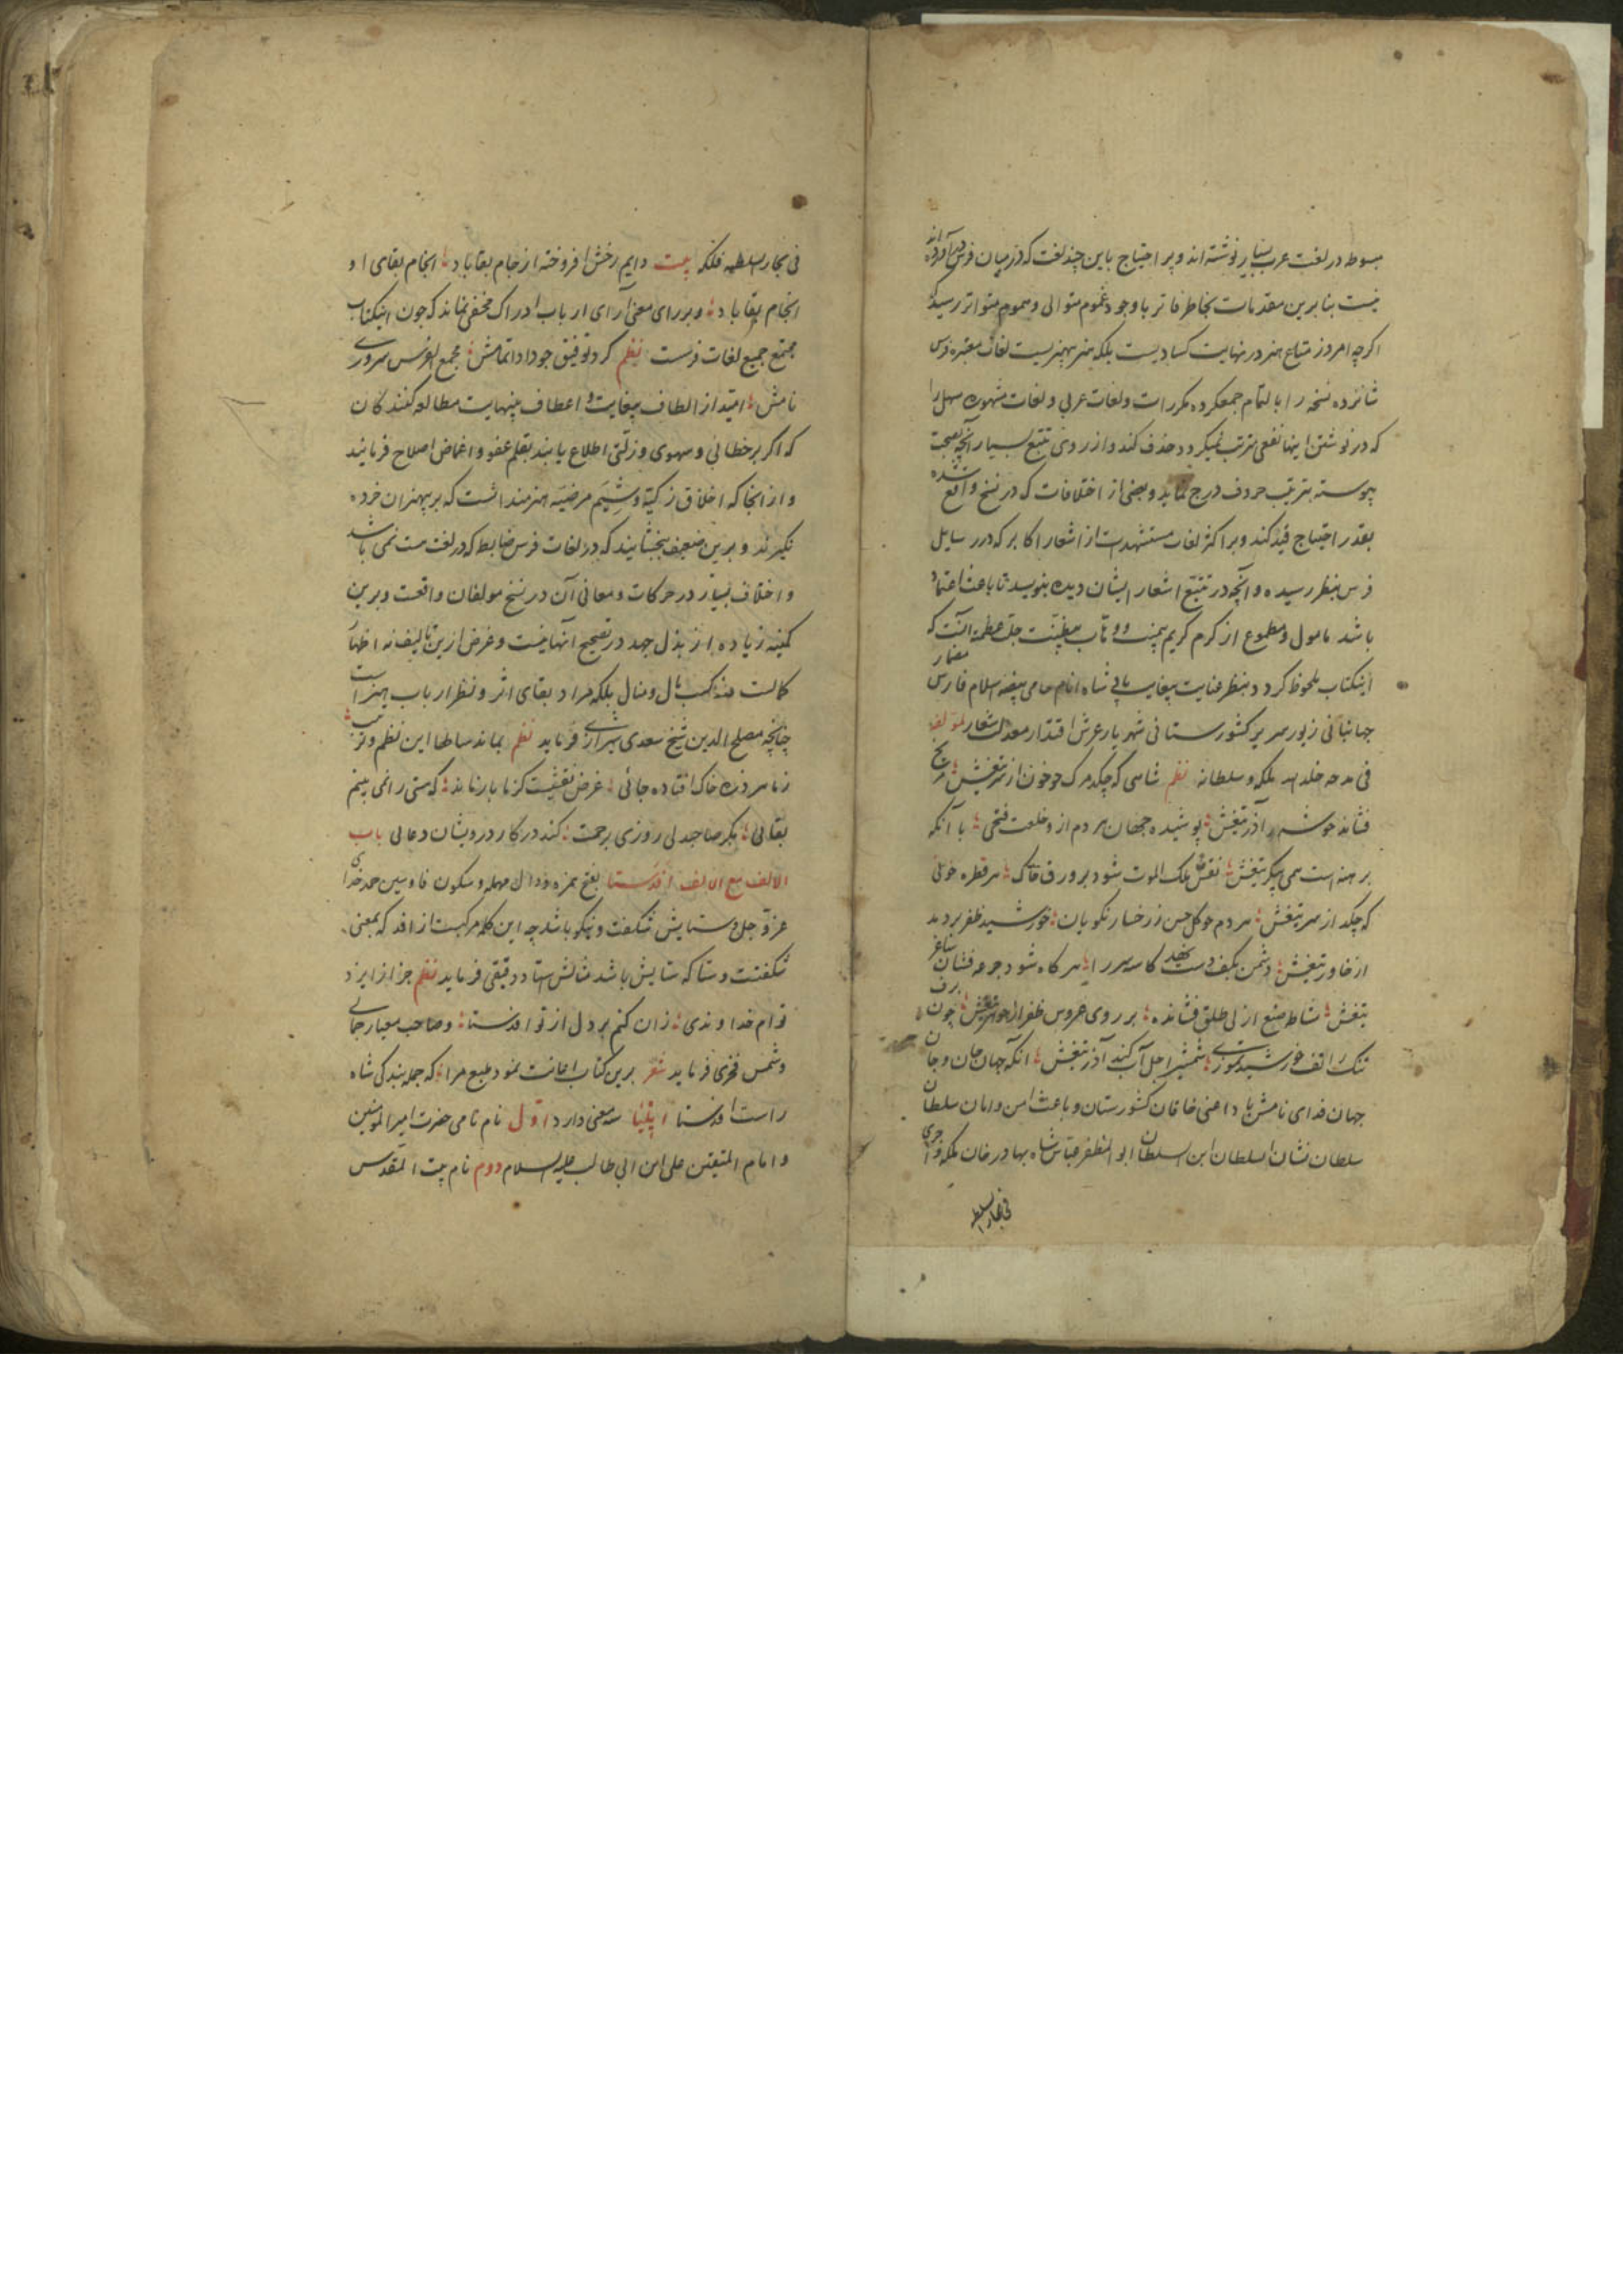 مبسوط در لغت عرب بسیار نوشته‌اند و پر احتیاج باین چند لغت که در میان فرس در آورده‌اند
نیست بنا برین مقدمات بخاطر فاتر با وجود غموم متوالی و هموم متواتر رسید که
اکرچه امروز متاع هنر در نهایت کسادیست بلکه هنر بیهنریست لغات معتبره فرس
شانزده نسخه را بالتمام جمعکرده مکررات و لغات عربی و لغات مشهوره سهل را
که در نوشتن اینها نفعی مترتب نمیکردد حذف کند و از روی تتبع بسیار آنچه بصحت
پیوسته بترتیب حروف درج نماید و بعضی از اختلافات که در نسخ واقع شده
بقدر احتیاج قید کند و بر اکثر لغات مستشهدات از اشعار اکابر که در رسایل
فرس بنظر رسیده و آنچه در تتبع اشعار ایشان دیده بنویسد تا باعث اعتماد
باشد مامول و مطموع از کرم کریم بیمنت و وهاب بیضنت جلت عظمته آنست که
اینکتاب ملحوظ کردد بنظر عنایت بیغایت شاه انام حامی بیضه اسلام فارس مضمار
جهانبانی زیور سریر کشورستانی شهریار عرش اقتدار معدلت شعار لمؤلفه
فی مدحه خلد الله ملکه و سلطانه نظم شاهی که چکد مرک چو خون از سر تیغش مریخ
فشاند خوشه آذر تیغش پوشیده جهان هر دم ازو خلعت فتحی با آنکه
برهنه است همی پیکر تیغش نقش ملک الموت شود بر ورق خاک هر قطره خونی
که چکد از سر تیغش هر دم چو کل حسن ز رخسار نکویان خورشید ظفر بردمد
از خاور تیغش دشمن بکف دست نهد کاسه سر را هر کاه شود جرعه فشان ساغر
تیغش مشاطه صنع ازلی طلق فشانده بر روی عروس ظفر از جوهر تیغش چون برف
تنک را تف خورشید تموزی شمشیر اجل آب کند آذر تیغش آنکه جهان جان و جان
جهان فدای نامش باد اعنی خاقان کشورستان و باعث امن و امان سلطان
سلطان نشان السلطان ابن السلطان ابو المظفر عباس شاه بهادر خان ملکه و اجری
فی بحار السلطه
فی بحار السلطه فلکه بیت دایم رخش افروخته از جام بقا باد انجام بقای او
انجام بقا باد و بر رای معنی آرای ارباب ادراک مخفی نماند که چون اینکتاب
مجتمع جمیع لغات فرست نظم کرد توفیق چو داد اتمامش مجمع الفرس سروری
نامش امید از الطاف بیغایت و اعطاف بینهایت مطالعه کنندکان
که اکر بر خطائی و سهوی و زلتی اطلاع یابند بقلم عفو و اغماض اصلاح فرمایند
و از آنجا که اخلاق زکیه و شیم مرضیه هنرمندانست که بر بیهنران خرده
نکیرند و برین ضعیف ببخشایند که در لغات فرس ضابطه که در لغت هست نمی باشد
و اختلاف بسیار در حرکات و معانی آن در نسخ مولفان واقعست و برین
کمینه زیاده از بذل جهد در تصحیح آنها نیست و غرض ازین تالیف نه اظهار
کمالست نه کسب مال و منال بلکه مراد بقای اثر و نظر ارباب هنر است
چنانچه مصلح الدین شیخ سعدی شیرازی فرماید نظم بماند سالها این نظم و ترتیب
ز ما هر ذره خاک افتاده جائی غرض نقشیست کز ما باز ماند که هستی را نمی بینم
بقائی مکر صاحبدلی روزی برحمت کند در کار درویشان دعائی باب
الالف مع الالف افدستا بفتح همزه و دال مهمله و سکون فا و سین حمد خدای
عز و جل و ستایش شکفت و نیکو باشد چه این کلمه مرکبست از افد که بمعنی
شکفتست و ستا که ستایش باشد مثالش استاد دقیقی فرماید نظم جز از ایزد
توام خداوندی زان کنم بر دل از تو افدستا و صاحب معیار جمالی
و شمس فخری فرماید شعر برین کتاب اعانت نمود طبع مرا که جمله بندکی شاه
راست افدستا ایلیا سه معنی دارد اول نام نامی حضرت امیر المؤمنین
و امام المتقین علی ابن ابی طالب علیه السلام دوم نام بیت المقدس